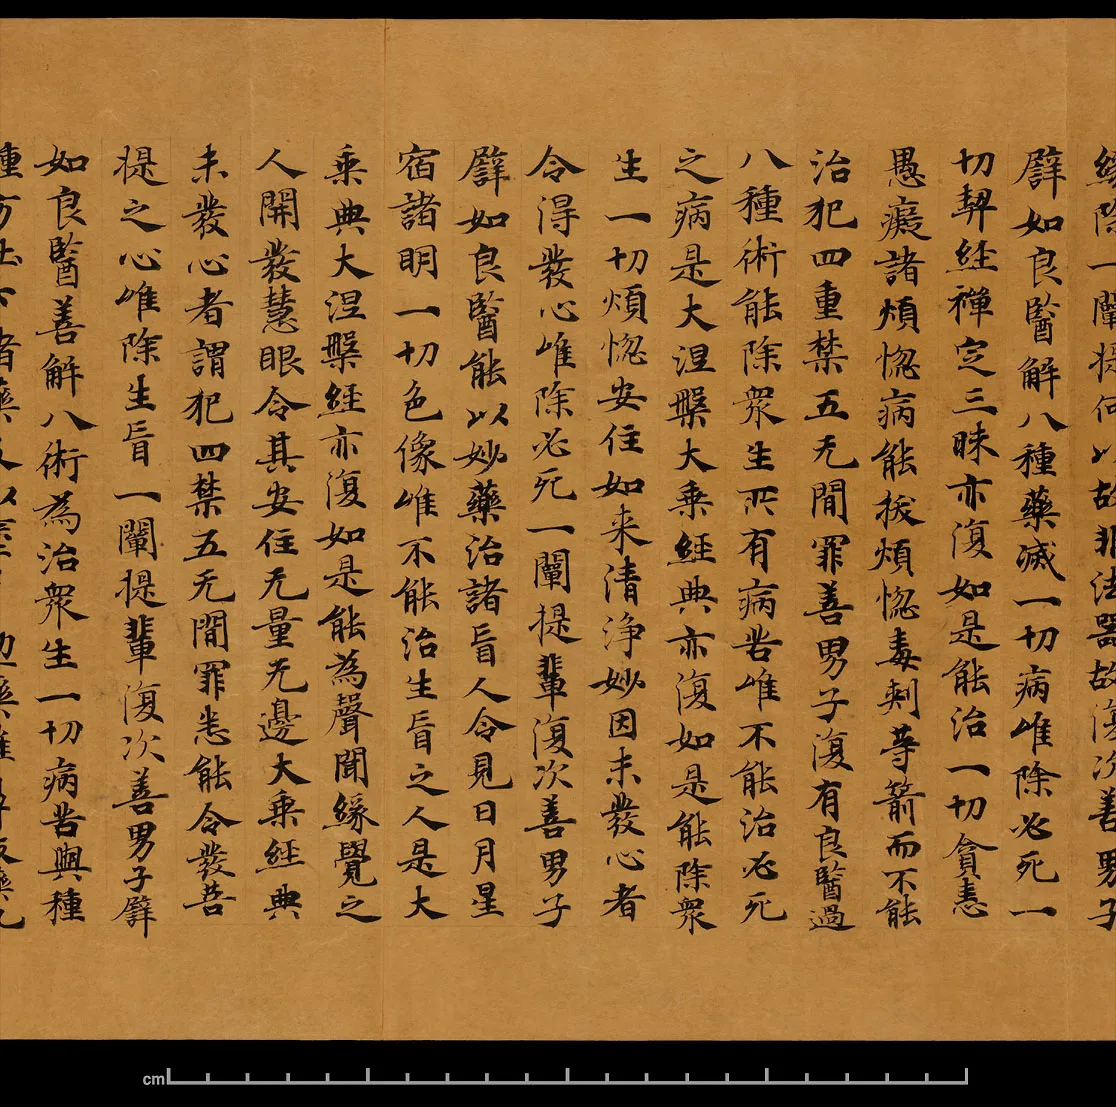 緣除一闡提何以故非法器故復次善男子
譬如良醫解八種藥滅一切病唯除必死一
切契經禪定三昧亦復如是能治一切貪恚
愚癡諸煩惚病能拔煩惚毒刺等箭而不能
治犯四重禁五无間罪善男子復有良醫過
八種術能除衆生所有病苦唯不能治必死
之病是大涅槃大乘經典亦復如是能除衆
生一切煩惚安住如来清淨妙因未發心者
令得發心唯除必死一闡提輩復次善男子
譬如良醫能以妙藥治諸盲人令見日月星
宿諸明一切色像唯不能治生盲之人是大
乘典大涅槃經亦復如是能為聲聞緣覺之
人開發慧眼令其安住无量无邊大乘經典
未發心者謂犯四禁五无間罪悉能令發菩
提之心唯除生盲一闡提輩復次善男子譬
如良醫善解八術為治衆生一切病苦與種
種方